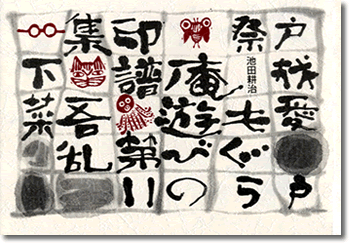 戸愛戸
祭もぐら
池田耕治
庵遊びの
印譜第11
集吾乱
下菜